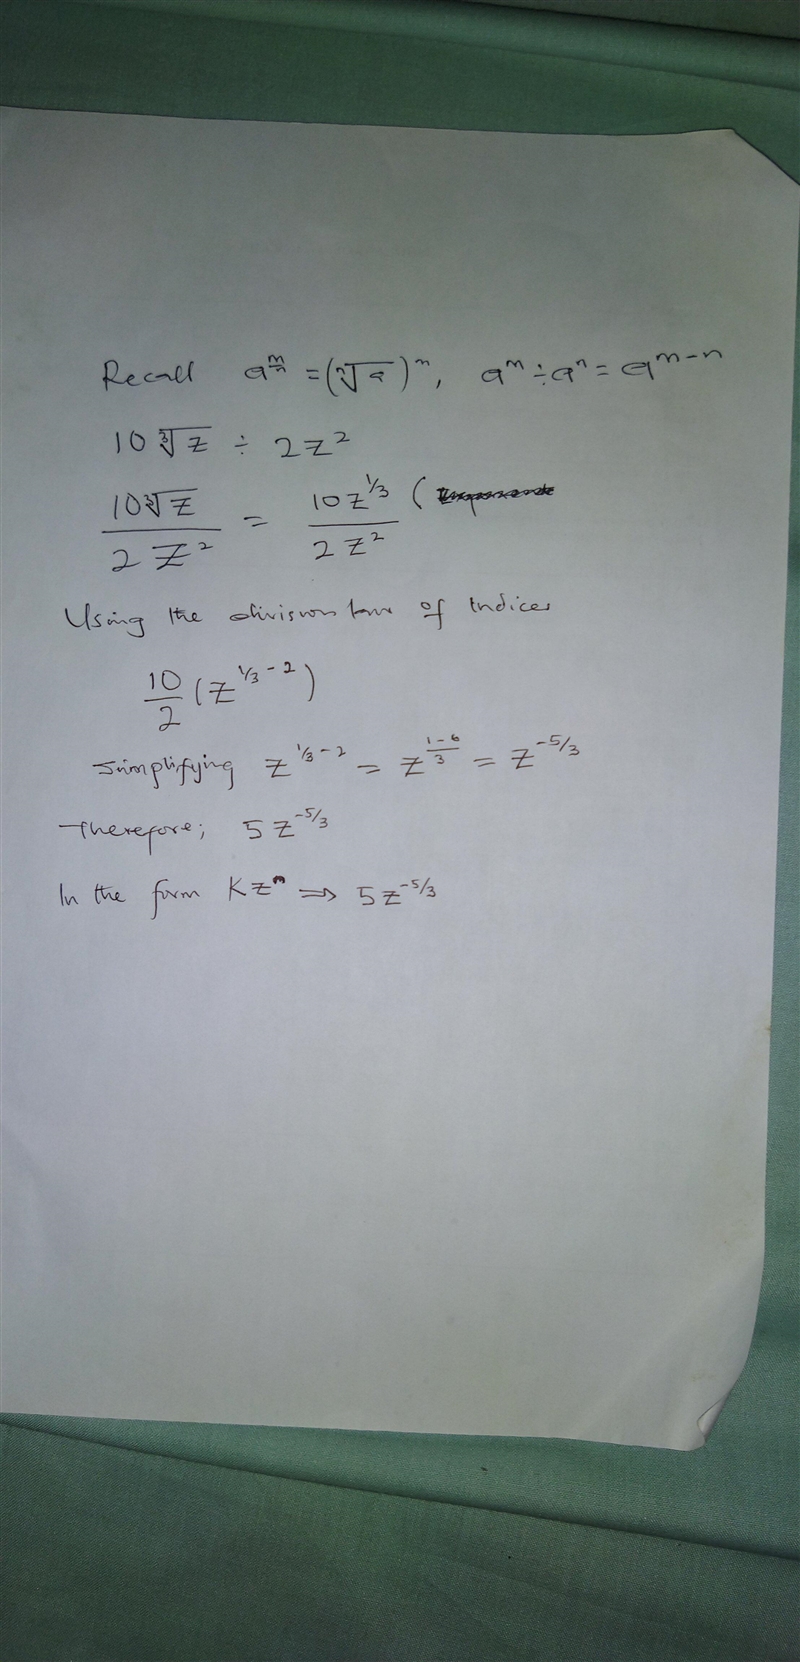 Recall a^{m/n} = (ⁿ√a)^m, a^m ÷ a^n = a^{m-n}
10∛z ÷ 2z²
10∛z / 2z² = 10z^{1/3} / 2z² (
Using the division law of Indices
10/2 (z^{1/3 - 2})
Simplifying z^{1/3 - 2} = z^{(1-6)/3} = z^{-5/3}
Therefore; 5z^{-5/3}
In the form Kz^m ⇒ 5z^{-5/3}